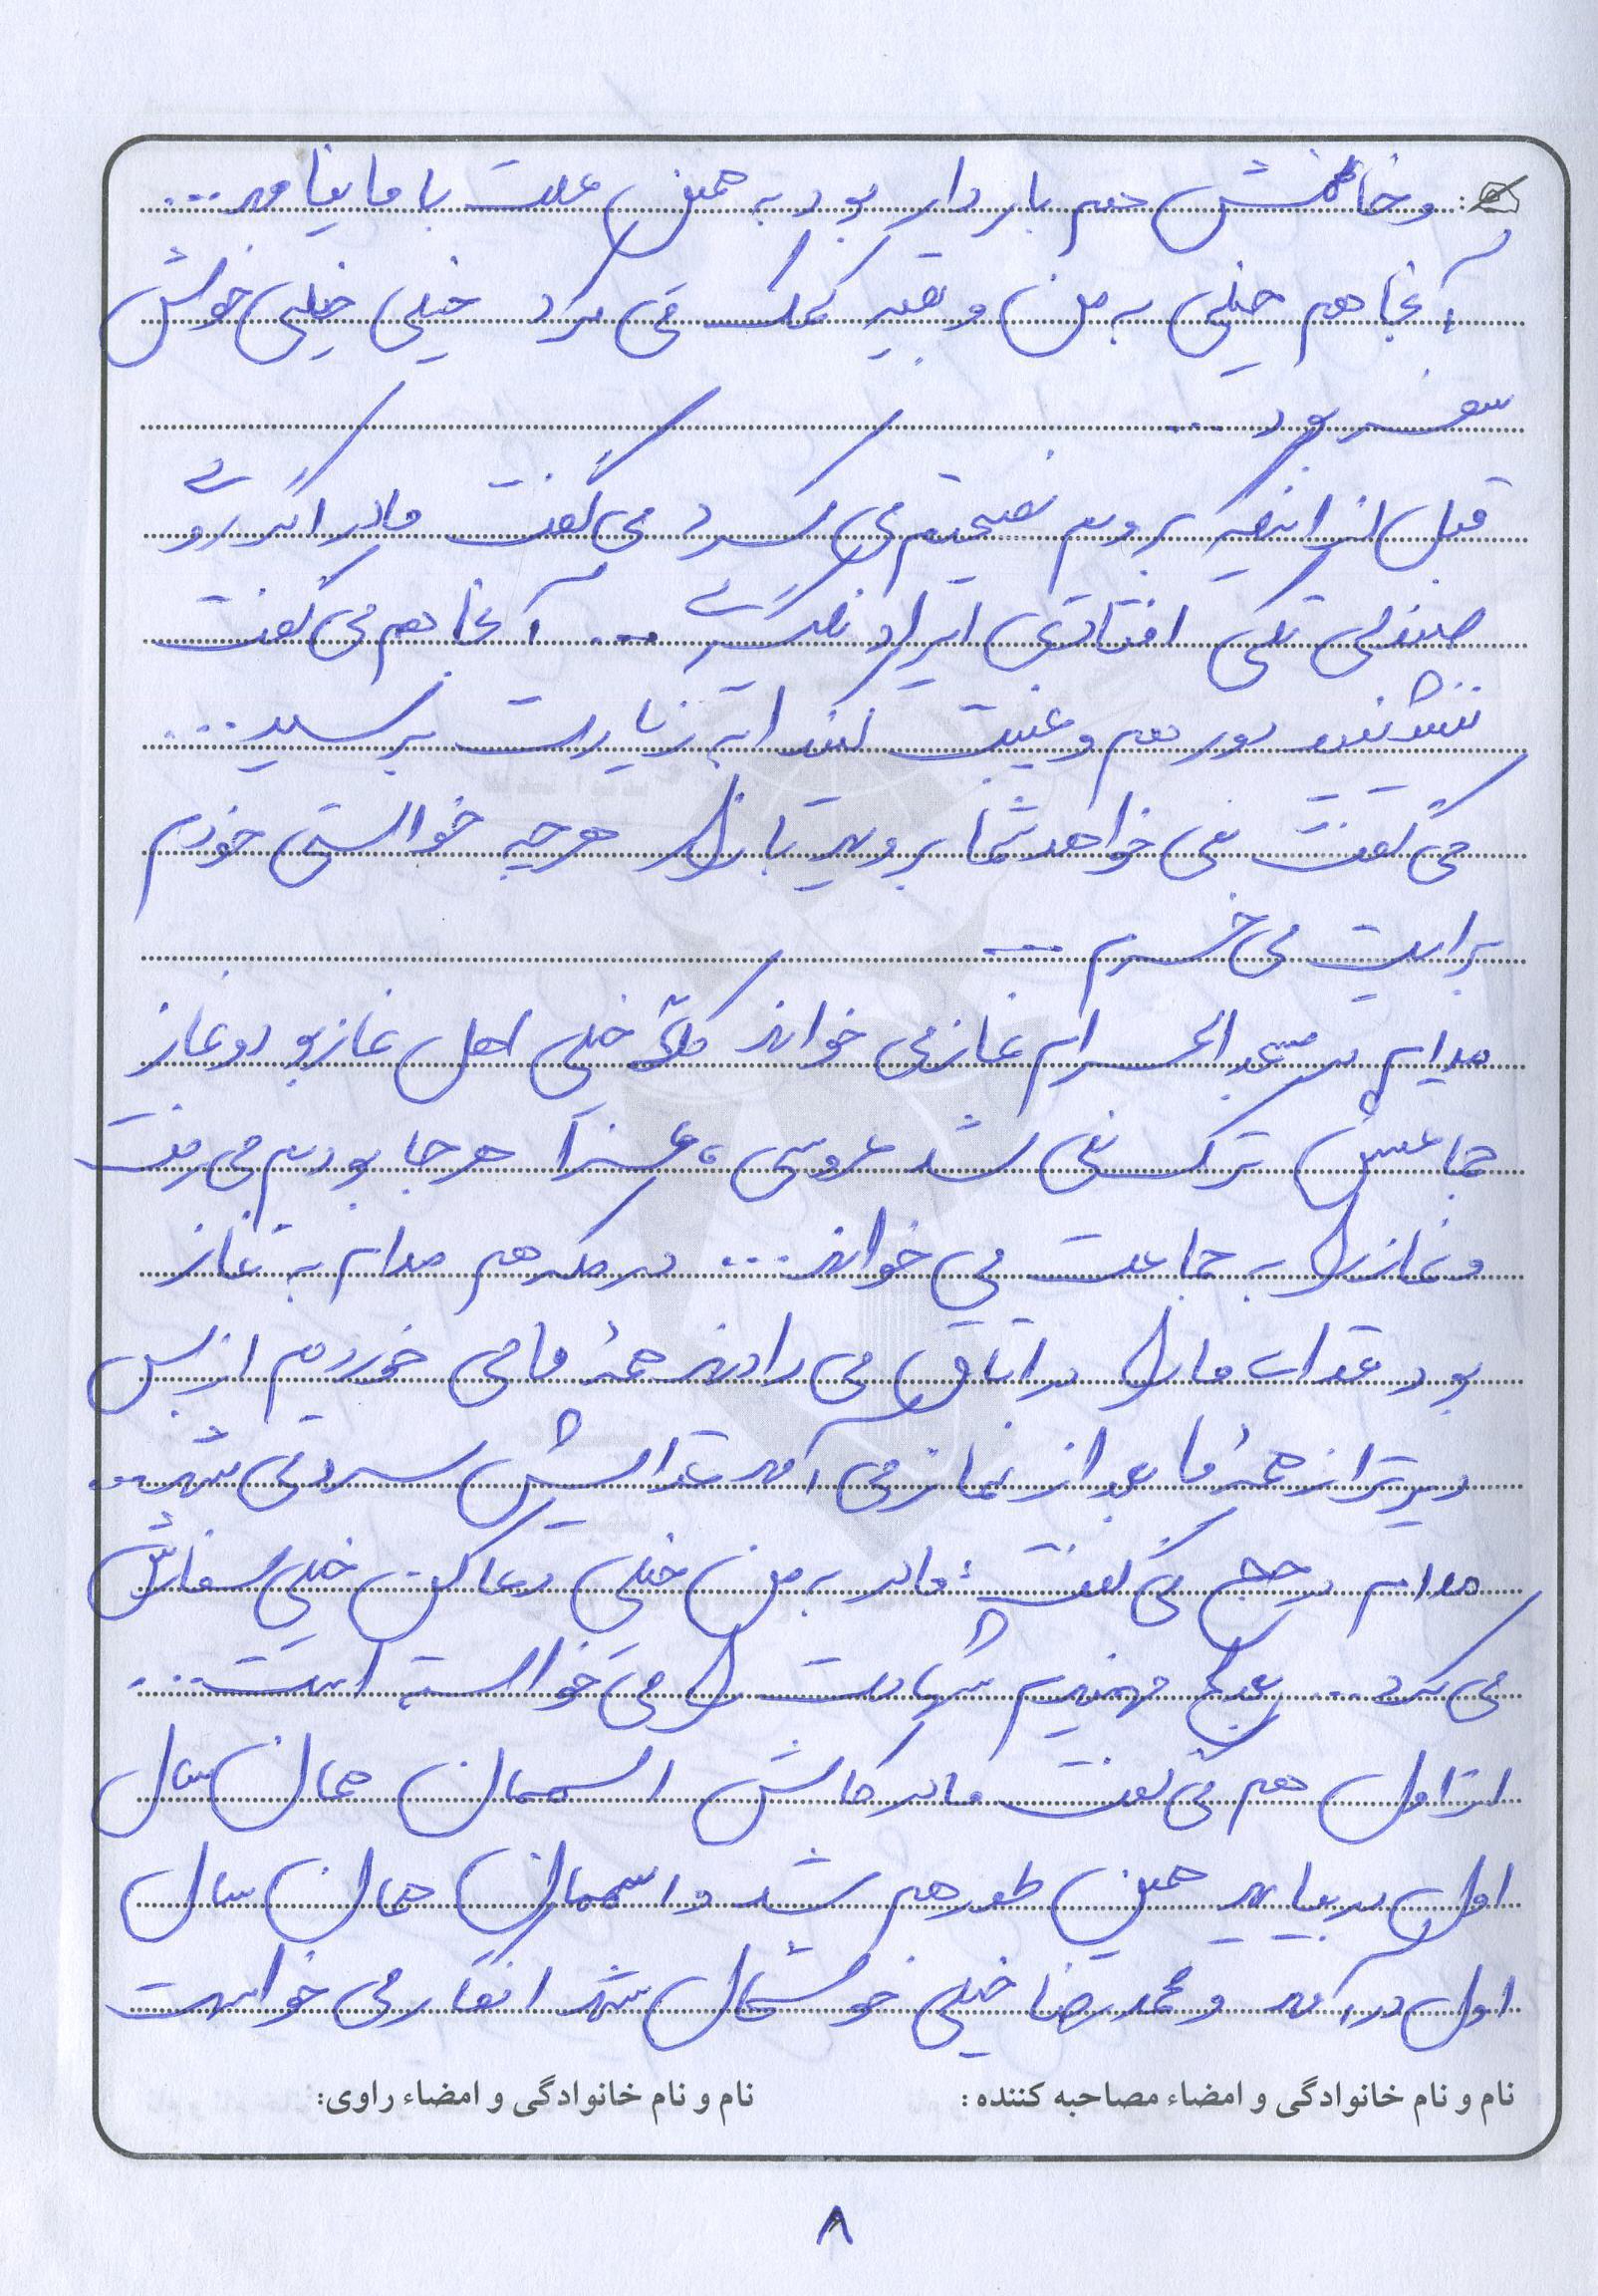 و خانمش هم باردار بود به همین علت با ما نیامد...
آنجا هم خیلی به من و بقیه کمک می کرد خیلی خیلی خوش
سفر بود ...
قبل از اینکه بروم نصیحتم می کرد می گفت مادر اگر روی
صندلی تکی افتادی ایراد نگیری ... آنجا هم می گفت
ننشینید دور هم و غیبت کنید به زیارت برسید...
می گفت نمی خواهد شما بروید بازار هر چه خواستی خودم
برایت می خرم ...
مدام در مسجد الحرام نماز می خواند کلاً خیلی اهل نماز بود و نماز
جماعتش ترک نمی شد عروسی، عزا هر جا بودیم می رفت
و نماز را به جماعت می خواند... در مکه هم مدام به نماز
بود غذای ما را در اتاق می دادند همهٔ ما می خوردیم از بس
دیرتر از همهٔ ما بعد از نماز می آمد غذایش سرد می شد...
مدام در حج می گفت: مادر به من خیلی دعا کن خیلی سفارش
می کرد... بعداً فهمیدم شهادت را می خواسته است...
از اول هم می گفت مادر کاش اسممان همان سال
اول در بیاید همین طور هم شد و اسممان همان سال
اول در آمد و محمدرضا خیلی خوشحال شد انگار می خواست
نام و نام خانوادگی و امضاء مصاحبه کننده: نام و نام خانوادگی و امضاء راوی:
۸